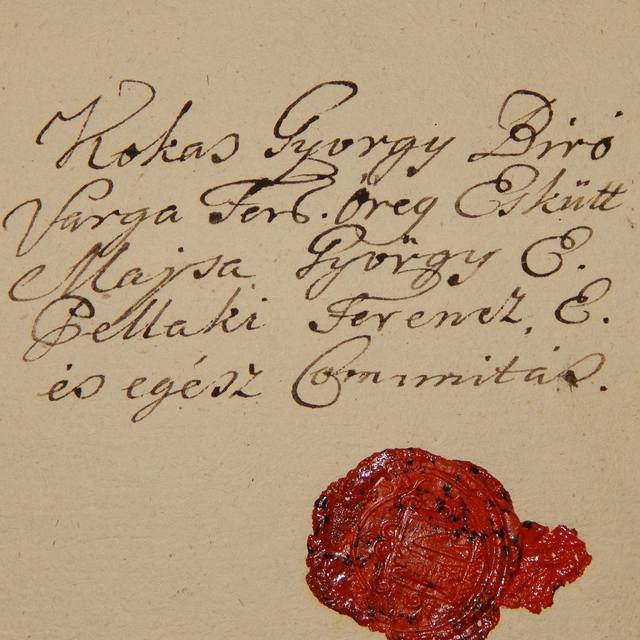 Kokas Gyorgy Biró
Varga Ferö. Öreg Eskütt
Majsa György E.
Pellaki Ferencz, E.
és egész Communitás.